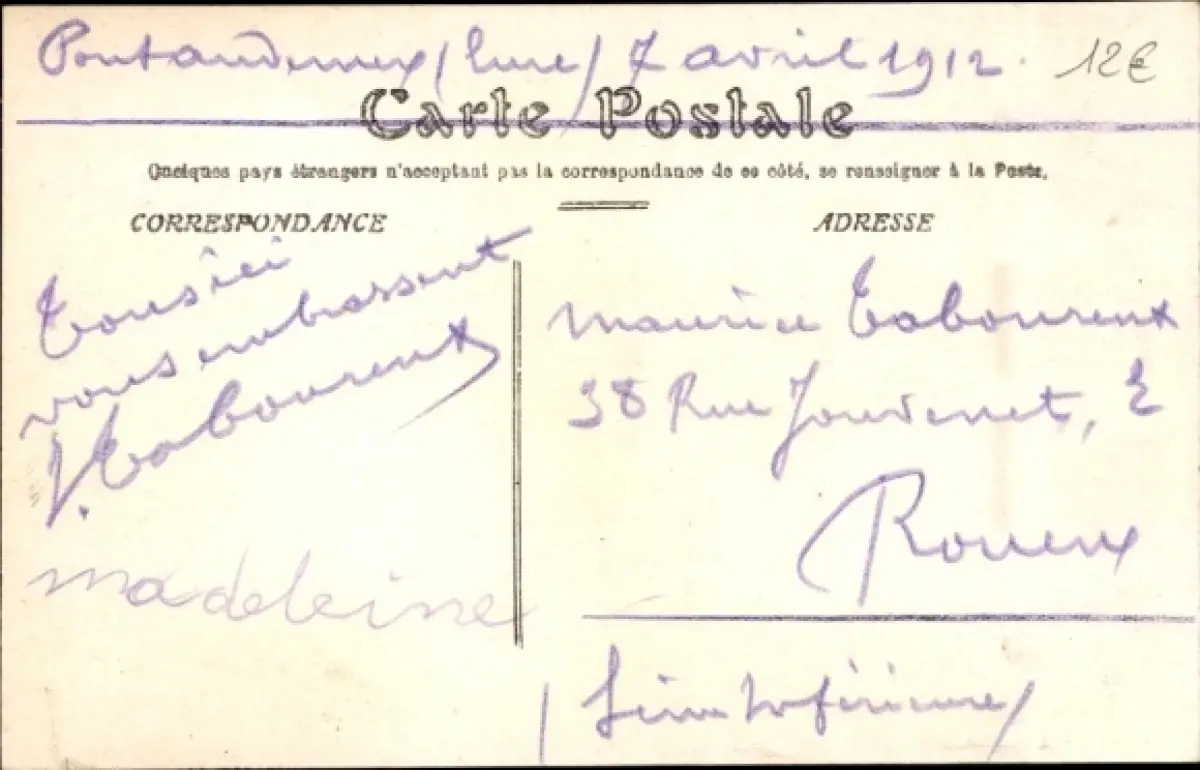 Pontaudemer (Eure) 7 avril 1912. 12€
Carte Postale
Quelques pays étrangers n'acceptant pas la correspondance de ce côté, se renseigner à la Poste.
CORRESPONDANCE
Tous ici
vous embrassent
J. Tabourent
madeleine
ADRESSE
Maurice Tabourent
38 Rue Jouvenet, 2
Rouen
(Seine Inférieure)